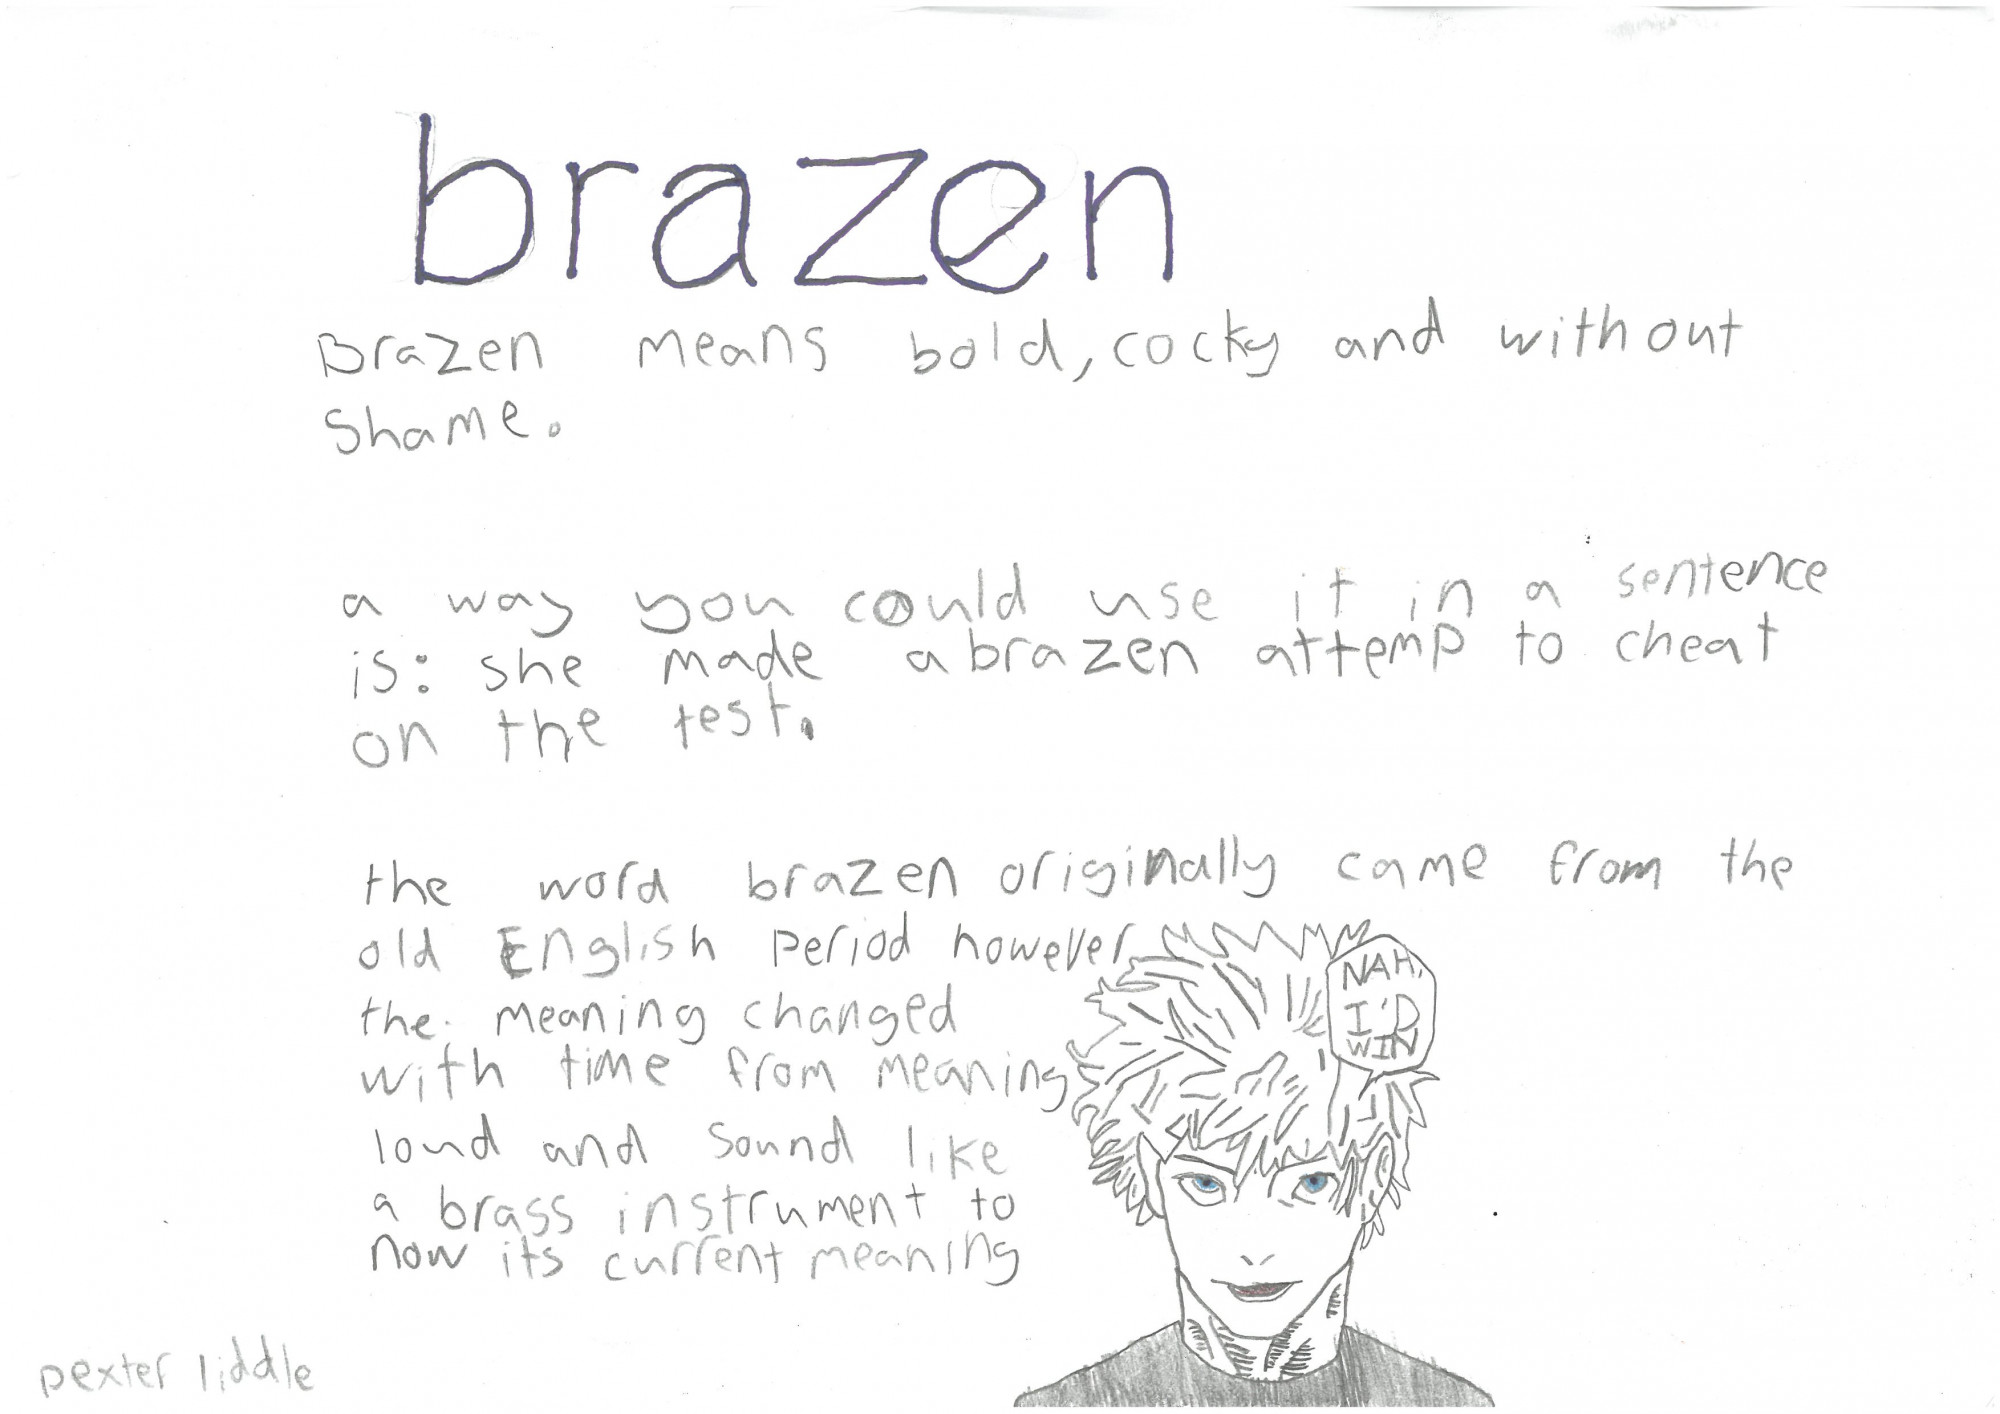 brazen
Brazen means bold, cocky and without
shame.
a way you could use it in a sentence
is: she made a brazen attemp to cheat
on the test.
the word brazen originally came from the
old English period however
the meaning changed
with time from meaning
loud and sound like
a brass instrument to
now its current meaning
NAH,
I'D
WIN
Dexter liddle